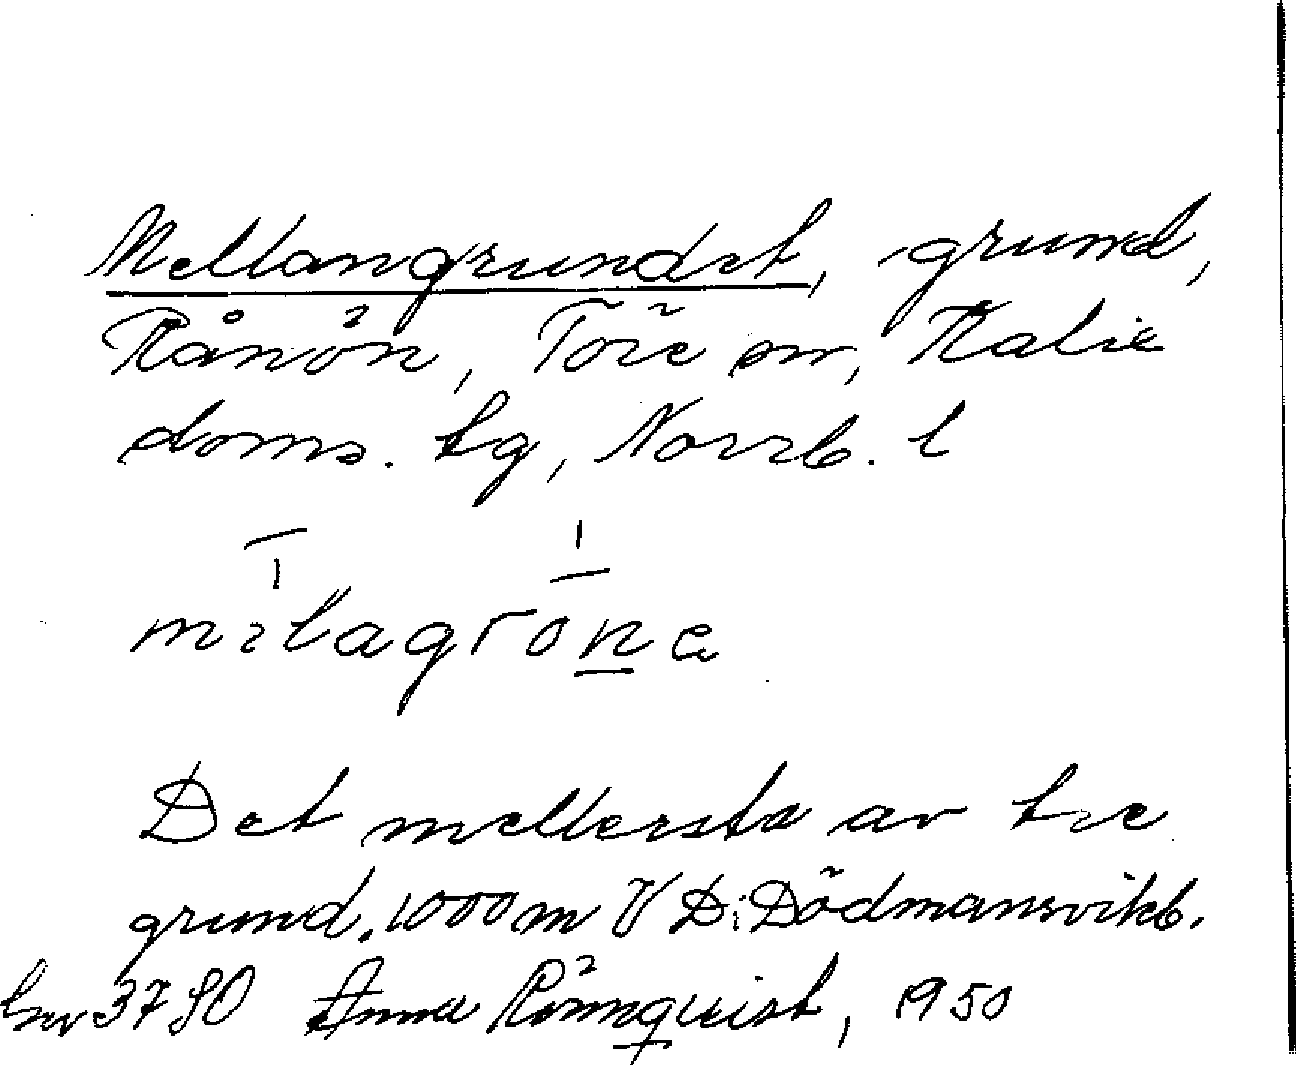 Mellangrundet, grund,
Rånön, Töre sn, Kalix
doms. tg, Norrb. l
mılagrona
Det mellersta av tre
grund. 1000 m V D. Dödmansvikb.
lnr 3780 Anna Rönnquist, 1950